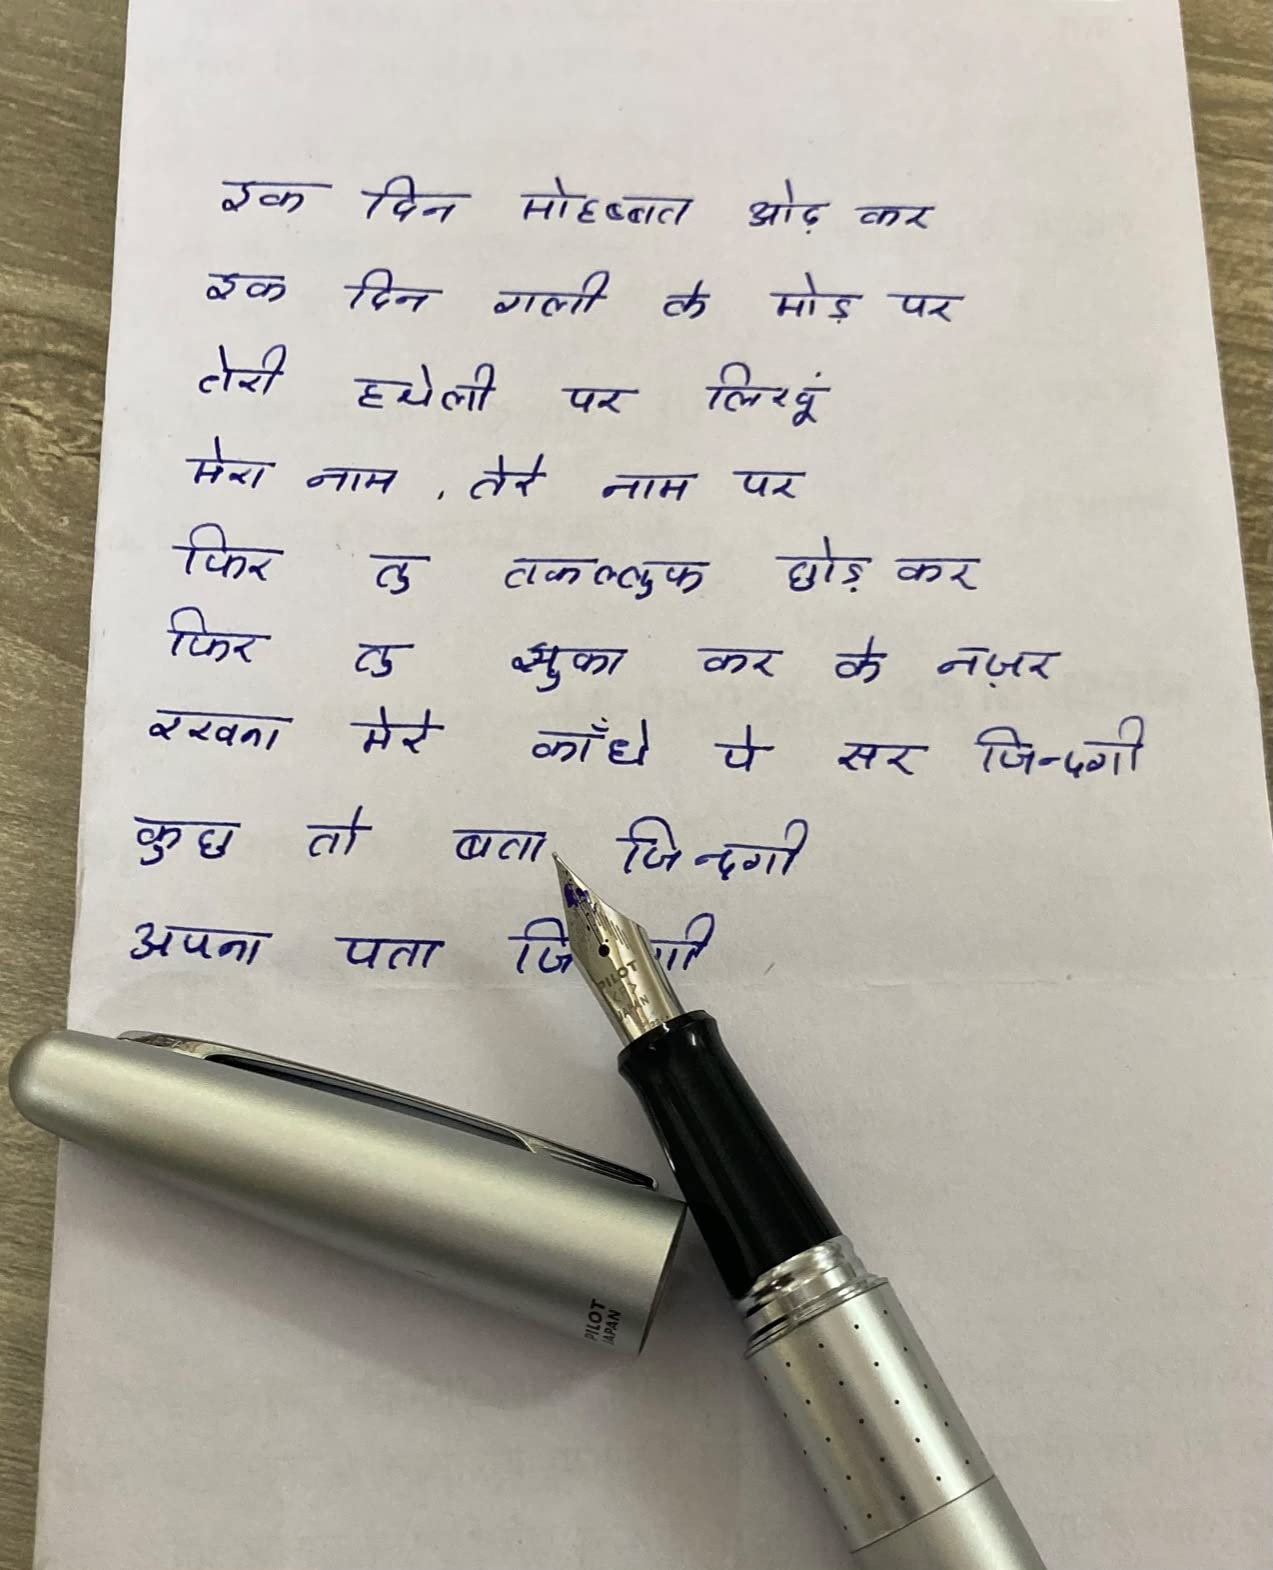 इक दिन मोहब्बत ओढ़ कर
इक दिन गली के मोड़ पर
तेरी हथेली पर लिखूं
मेरा नाम, तेरे नाम पर
फिर तु तकल्लुफ छोड़ कर
फिर तु झुका कर के नज़र
रखना मेरे काँधे पे सर जिन्दगी
कुछ तो बता जिन्दगी
अपना पता
PILOT
JAPAN
PILOT
JAPAN